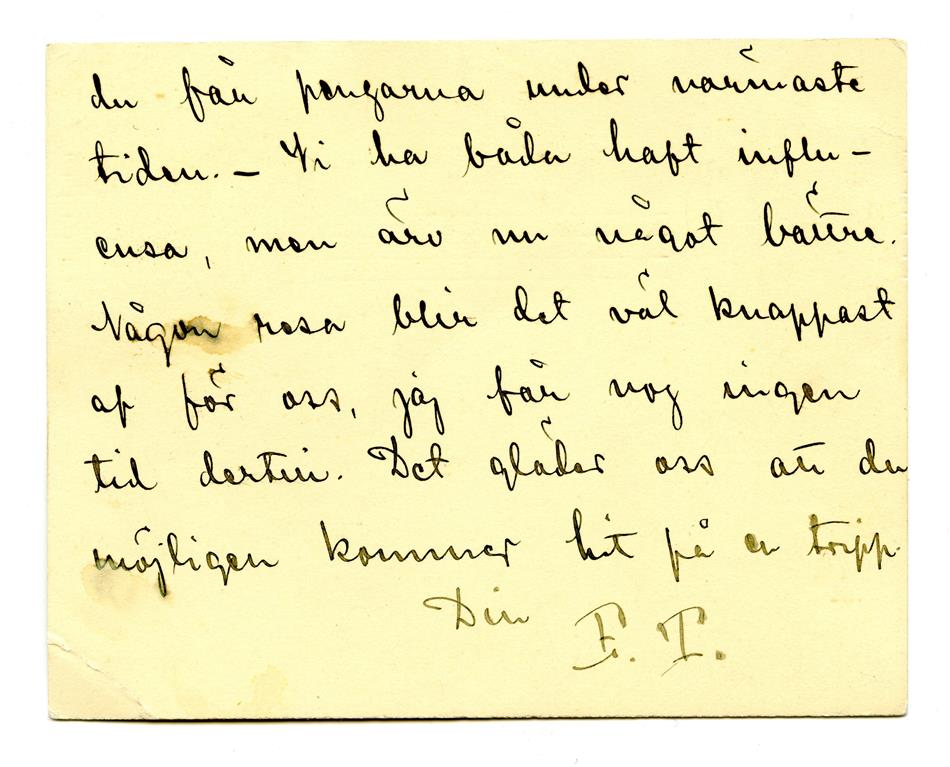 du får pengarna under närmaste
tiden. – Vi ha båda haft influ-
ensa, men äro nu något bättre.
Någon resa blir det väl knappast
af för oss, jag får nog ingen
tid dertill. Det gläder oss att du
möjligen kommer hit på en tripp.
Din F. T.